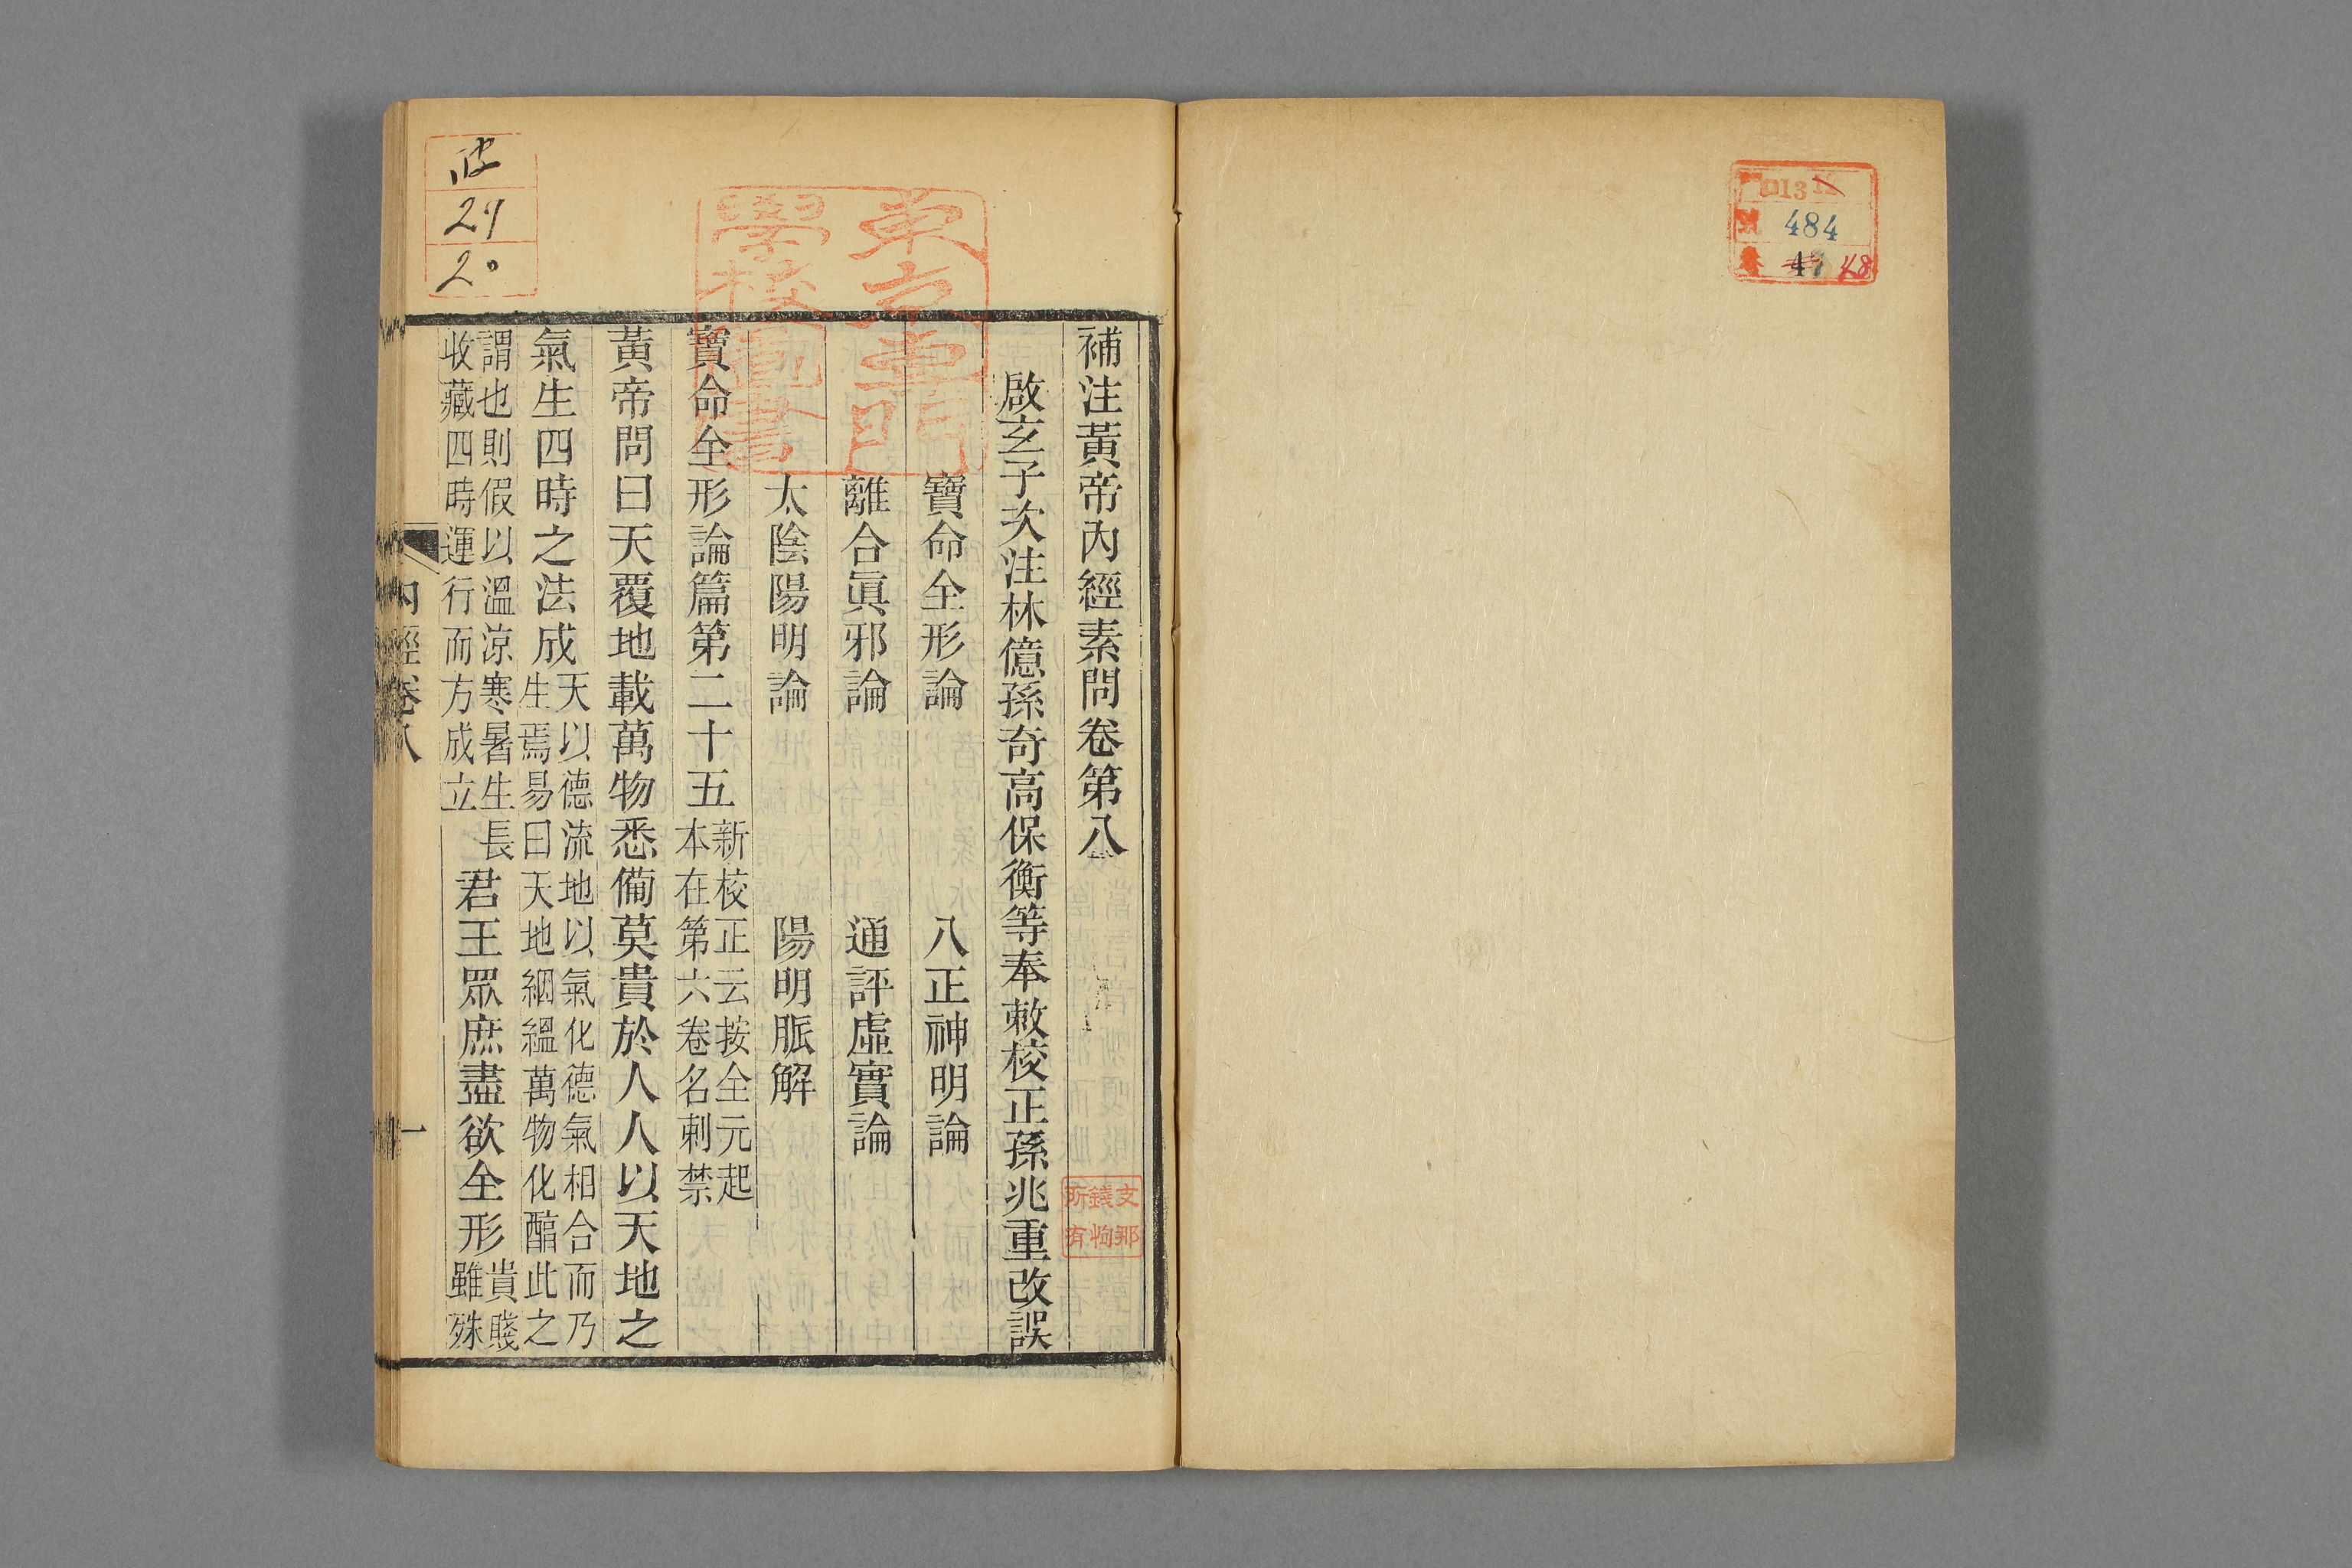 補注黃帝內經素問卷第八
啟玄子次注林億孫奇高保衡等奉敕校正孫兆重改誤
寶命全形論 八正神明論
離合眞邪論 通評虛實論
太陰陽明論 陽明脈解
寶命全形論篇第二十五
新校正云按全元起
本在第六卷名刺禁
黃帝問曰天覆地載萬物悉備莫貴於人人以天地之
氣生四時之法成
天以德流地以氣化德氣相合而乃
生焉易曰天地絪縕萬物化醇此之
謂也則假以溫涼寒暑生長
收藏四時運行而方成立
君王眾庶盡欲全形
貴賤
雖殊
內經卷八
一
東京專門
學校圖書
支那
錢恂
所有
24
20
D13
號 484
48